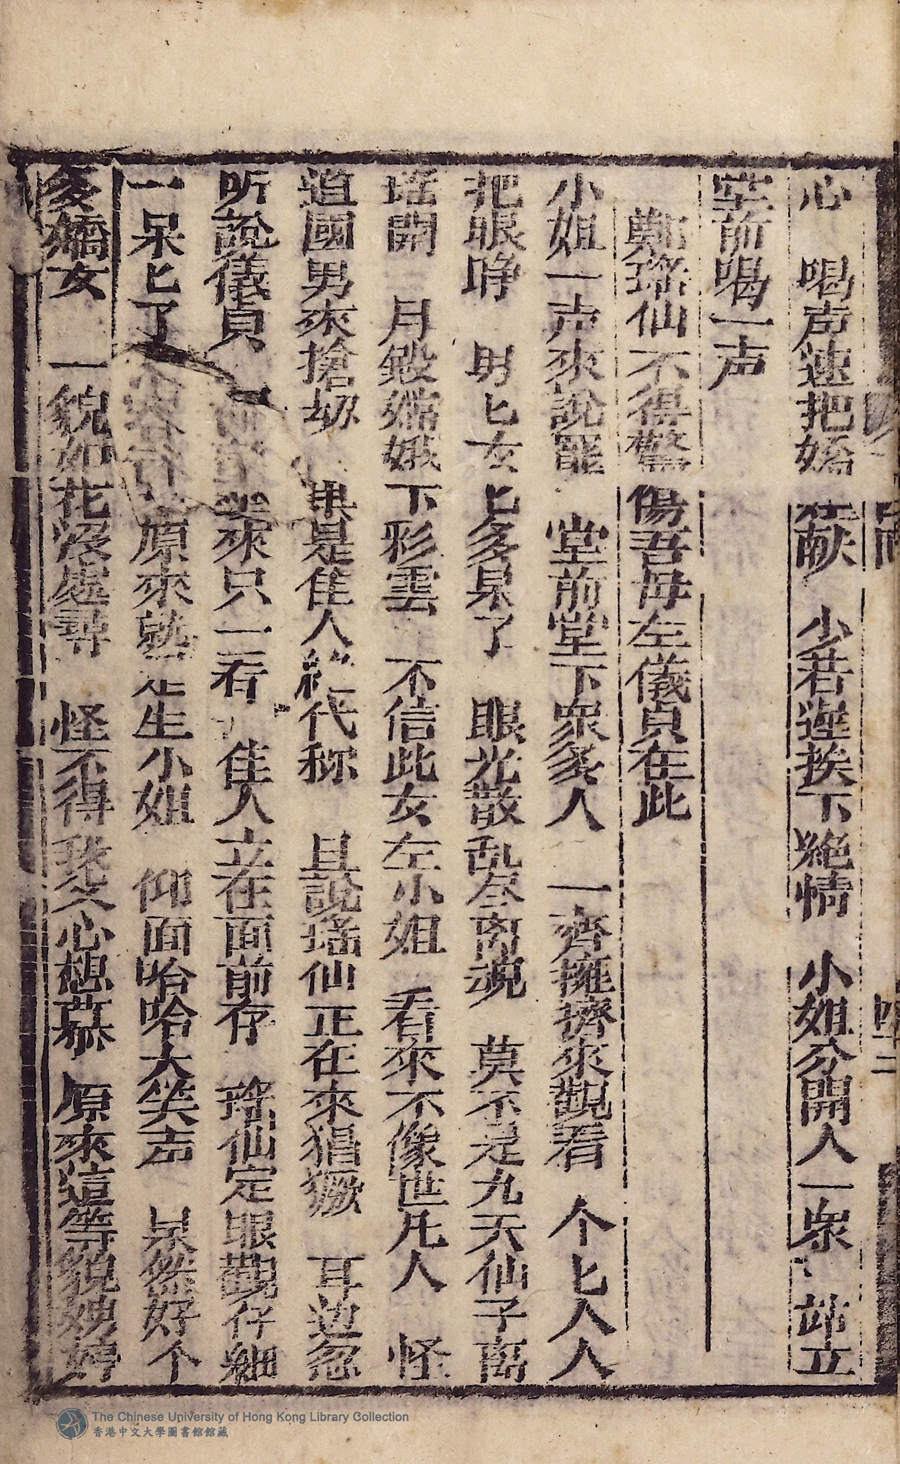 心　喝声速把嬌 献　少若遲挨下絕情　小姐分開人一衆　站立
堂前喝一声
鄭瑤仙不得驚傷吾母左儀貞在此
小姐一声來說罷　堂前堂下衆多人　一齊擁擠來觀看　个匕人人
把眼睁　男匕女匕多呆了　眼光散乱尽离魂　莫不是九天仙子离
瑤開　月殿嫦娥下彩雲　不信此女左小姐　看來不像世凡人　怪
道國男來搶刼　果是佳人絕代称　且說瑤仙正在來猖獗　耳边忽
听說儀貞 來只一看　佳人立在面前存　瑤仙定眼觀仔細
一呆匕了 原來就是 生小姐　仰面哈哈大笑声　呆然好个
多嬌女　一貌如花沒處尋　怪不得 心想慕　原來這等貌娉婷
The Chinese University of Hong Kong Library Collection
香港中文大學圖書館館藏